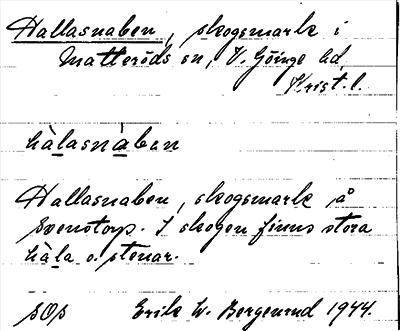 Hallasnaben, skogsmark i
Matteröds sn, V. Göinge hd,
Krist. l.
hàlasnàban
Hallasnaben, skogsmark å
Svenstorp. I skogen finns stora
hàla o. stenar.
SOS Erik W. Bergenrud 1944.